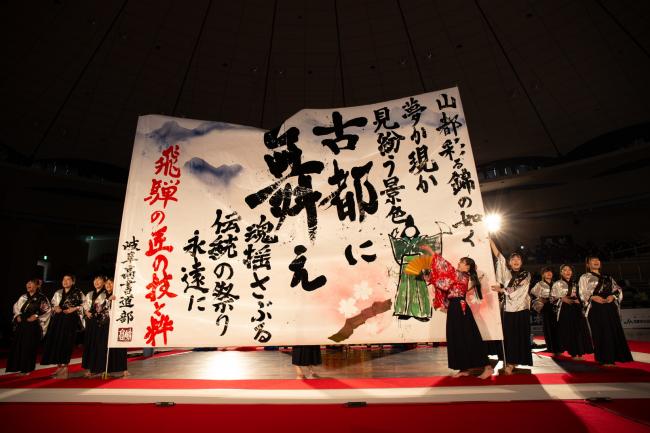 山都彩なる錦の如く
夢か現か
見紛う景色
古都に
舞え
魂揺さぶる
伝統の祭り
永遠に
飛騨の匠の技と粋
岐阜高書道部